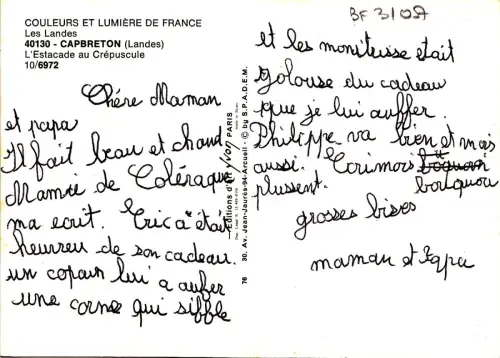 COULEURS ET LUMIÈRE DE FRANCE
Les Landes
40130 - CAPBRETON (Landes)
L'Estacade au Crépuscule
10/6972
Chére Maman
et papa
Il fait beau et chaud
Mamie de Coléraque
ma ecrit. Eric a était
heureu de son cadeau.
un copain lui a aufer
une corne qui siffle
Editions d'art yvon PARIS
30, Av. Jean-Jaurès-94-Arcueil - © by S.P.A.D.E.M.
76
BF 3/087
et les moniteuse etait
golouse du cadeau
que je lui auffer.
Philippe va bien et mois
aussi. Ecrimois
plussent. bouquou
grosses bises
maman et Papa